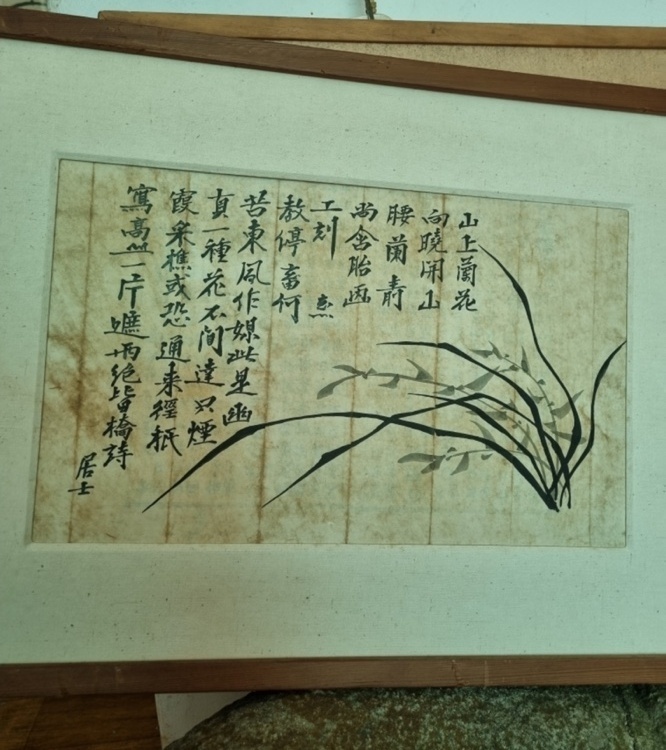 山上蘭花
向曉開山
腰蘭
尚含胎画
工刻
教停畜何
苦東風作媒此是幽
貞一種花不间達只煙
霞采樵或恐通来徑秖
寫高山一片遮两絶皆橋詩
居士